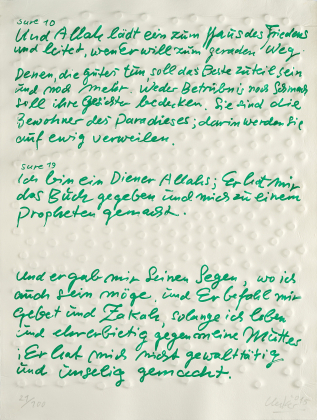 Sure 10
Und Allah lädt ein zum Haus des Friedens
und leitet, wen Er will zum geraden Weg.
Denen, die gutes tun, soll das Beste zuteil sein
und noch mehr. Weder Betrübnis noch Schmach
soll ihre Gesichter bedecken. Sie sind die
Bewohner des Paradieses; darin werden Sie
auf ewig verweilen.
Sure 19
Ich bin ein Diener Allahs; Er hat mir
das Buch gegeben und mich zu einem
Propheten gemacht.
Und er gab mir Seinen Segen, wo ich
auch sein möge, und Er befahl mir
Gebet und Zakah, solange ich leben
und ehrerbietig gegen meine Mutter
; Er hat mich nicht gewalttätig
und unselig gemacht.